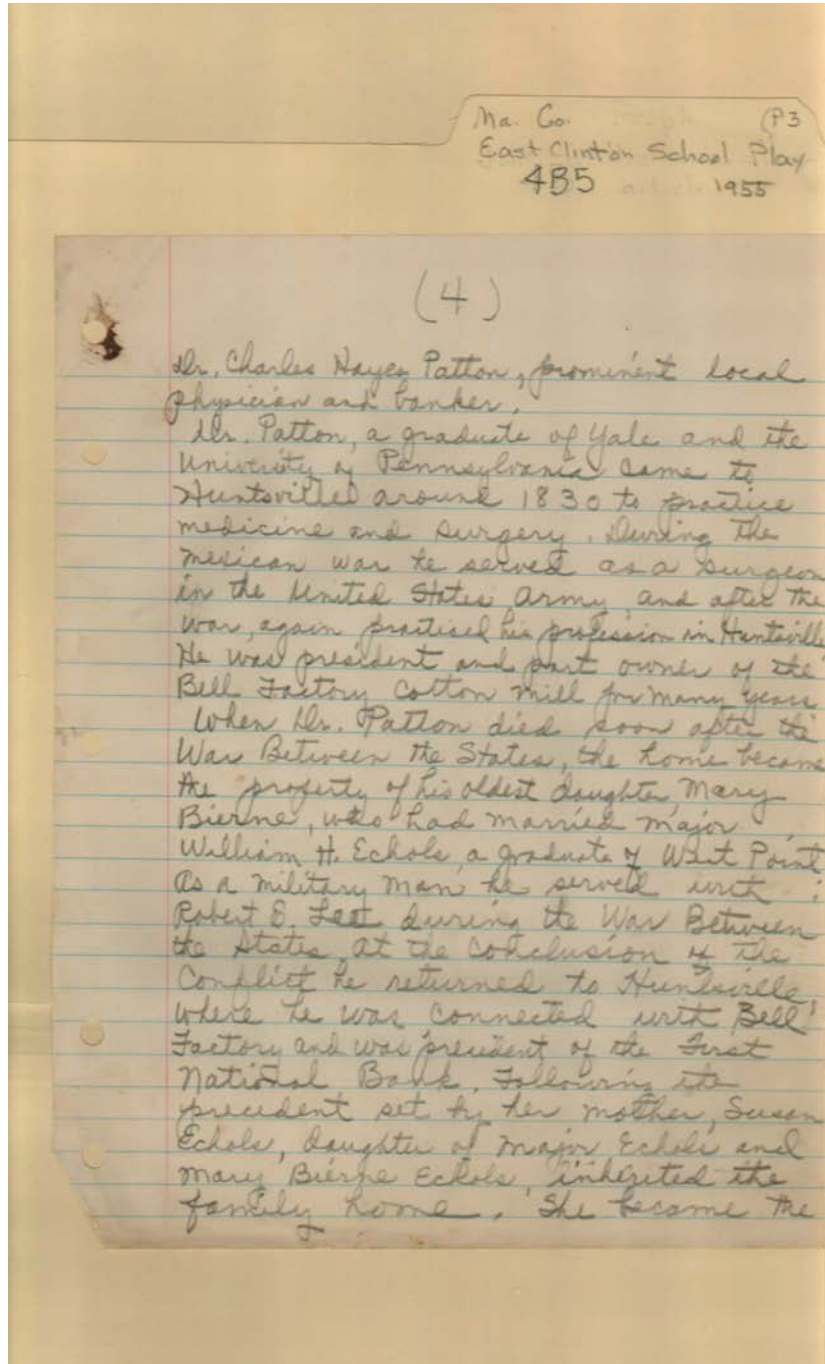 Ma. Co. (P3
East Clinton School Play
4B5 1955
(4)
Dr. Charles Hayes Patton, prominent local
physician and banker.
Dr. Patton, a graduate of Yale and the
University of Pennsylvania came to
Huntsville around 1830 to practice
medicine and surgery. During the
Mexican war he served as a surgeon
in the United States Army, and after the
war, again practised his profession in Huntsville
He was president and part owner of the
Bell Factory Cotton mill for many years
When Dr. Patton died soon after the
War Between the States, the home became
the property of his oldest daughter, Mary
Bierne, who had married Major
William H. Echols, a graduate of West Point
As a military man he served with
Robert E. Lee during the War Between
the States. At the conclusion of the
Conflict he returned to Huntsville,
where he was connected with Bell
Factory and was president of the First
National Bank. Following the
precedent set by her mother, Susan
Echols, daughter of Major Echols and
Mary Bierne Echols, inherited the
family home. She became the